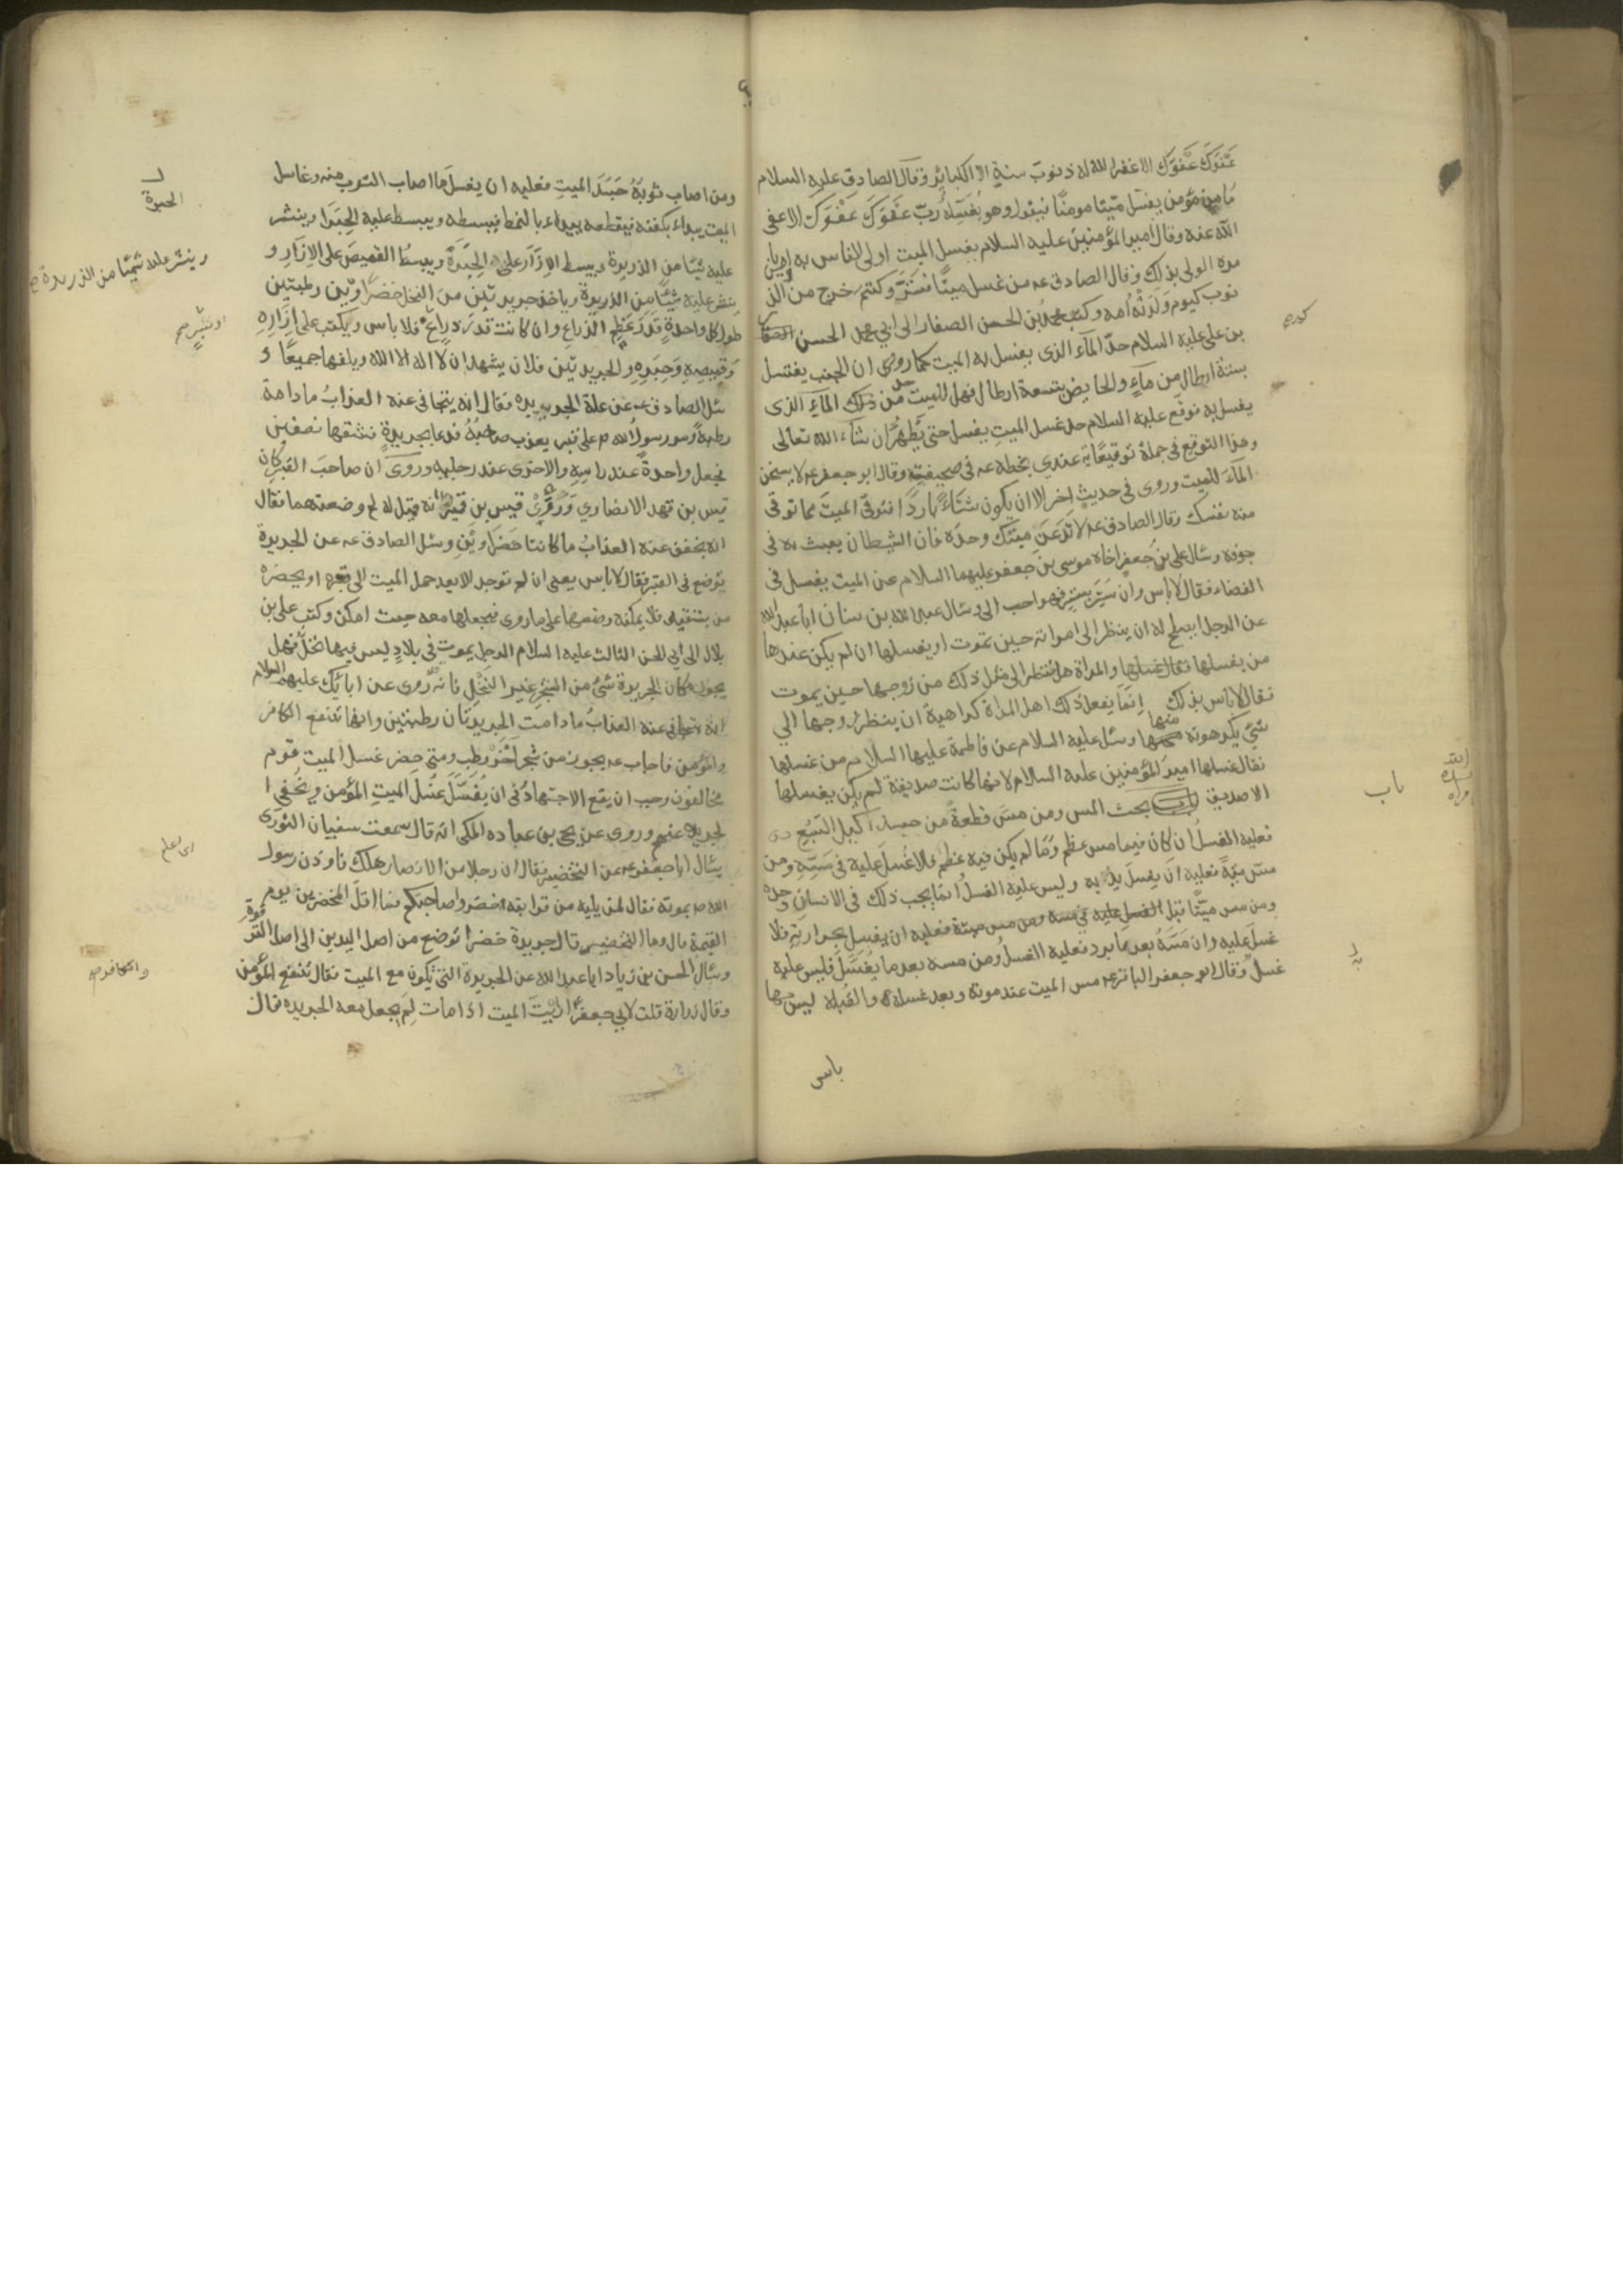 عَفْوَكَ عَفْوَكَ الا غفر الله له ذنوب سنة الا الكبائر وقال الصادق عليه السلام
ما من مؤمن يغسل ميتا مومنًا فيقول وهو يُغَسِّله رب عَفْوَكَ عَفْوَكَ الا عفى
الله عنه وقال امير المؤمنين عليه السلام يغسل الميت اولى الناس به او من
مره الولى بذلك وقال الصادق عه من غسل ميتًا فستر وكتم خرج من الذ
نوب كيوم وَلَدَتْهُ اُمه وكتب محمد بن الحسن الصفار الى ابي محمد الحسن
بن على عليه السلام حدّ الماء الذى يغسل به الميت كما روى ان الجنب يغتسل
بستة ارطال من ماء والحايض بتسعة ارطال فهل للميت حد من ذلك الماء الذى
يغسل به فوقع عليه السلام حد غسل الميت يغسل حتى يَطهُر ان شاء الله تعالى
وهذا التوقيع فى جملة توقيعاته عندي بخطه عه فى صحيفة وقال ابو جعفر عه لا يسخن
الماء للميت وروى فى حديث اخر الا ان يكون شتاءً باردًا فتوقى الميت مما توقى
منه نفسك وقال الصادق عه لا تدَعَنَّ ميتك وحده فان الشيطان يعبث به فى
جوفه وسال على بن جعفر اخاه موسى بن جعفر عليهما السلام عن الميت يغسل فى
الفضاء فقال لا باس وان سُتِر بستر فهو احب الى وسال عبد الله بن سنان ابا عبد الله
عن الرجل ايصلح له ان ينظر الى امراته حين تموت او يغسلها ان لم يكن عندها
من يغسلها والمراة هل تنظر الى مثل ذلك من زوجها حين يموت
فقال لا باس بذلك اِنما يفعل ذلك اهل المراة كراهية ان ينظر زوجها الي
شئ يكرهونه منها وسئل عليه السلام عن فاطمة عليها السلام من غسلها
فقال غسلها امير المؤمنين عليه السلام لانها كانت صديقة لم يكن يغسلها
الا صديق باب بحث المس ومن مس قطعة من جسد اكيل السَّبُع
فعليه الغسل ان كان فيما مس عظم وما لم يكن فيه عظم فلا غُسل عليه فى مَسّه ومن
مس ميتة فعليه ان يغسل يديه وليس عليه الغسل انما يجب ذلك فى الانسان وحده
ومن مس ميتًا قبل الغسل
غسل عليه وان مَسَّهُ بعد ما برد فعليه الغسل ومن مسه بعد ما يُغَسَّل فليس عليه
غسل وقال ابو جعفر الباقر عه مس الميت عند موته وبعد غسله والقُبلة ليس بها
باس
باب
ومن اصاب ثوبَهُ جَسَدَ الميتِ فعليه ان يغسلَ ما اصاب الثوب منه وغاسل
الميت يبداء بكفنه فيقطعه يبداء بالنمط فيبسطه ويبسط عليه الحِبَرَا وينثر
عليه شيئا من الذريرة ويبسط الاِزَار على الحِبَرَةْ ويبسطُ القميصَ على الاِزَارِ و
ينثر عليه شيئًا من الذريرة وياخذ جريدتين من النخل خضراوين رطبتين
طول كل واحدةٍ قَدْرَ عَظْمِ الذراع وان كانت قدر ذراعٍ فلا باس ويكتب على ازاره
وقميصِهِ وَحِبَرِهِ والجريدتين فلان يشهد ان لا اله الا الله ويلفها جميعًا و
سئل الصادق عه عن علة الجريده فقال انه يتجافى عنه العذابُ ما دامة
رطبة ومر رسول الله ص على قبر يعذب صاحبُهُ فدعا بجريدةٍ فشقها نصفين
فجعل واحدةً عند راسِهِ والاخرى عند رجليه وروى ان صاحبَ القبر كان
قيس بن فهد الانصاري وَرُوِىَ قيس بن قميرٍ وانه قيل له لم وضعتهما فقال
انه يخفف عنه العذابُ ما كانتا خضراوين وسئل الصادق عه عن الجريدة
توضع فى القبر فقال لا باس يعنى ان لم توجد الا بعد حمل الميت الى قبره او يحضره
من يتقيه فلا يمكنه وضعها على ما روى فيجعلها معه حيث امكن وكتب على بن
بلال الى ابي الحسن الثالث عليه السلام الرجل يموت فى بلادٍ ليس فيها نخلٌ فهل
يجوز مكان الجريدة شئ من الشجر غير النخل فانه رُوى عن ابائك عليهم السلام
انه يتجافى عنه العذابُ ما دامت الجريدتان رطبتين وانها تنفع الكافر
والمؤمن فاجاب عه يجوز من شجر اخر رطب ومتى حضر غسل الميت قوم
مخالفون وجب ان يقع الاجتهادُ فى ان يُغَسَّلَ غُسْلَ الميتِ المؤمن ويُخْفَى ا
لجريده عنهم وروى عن يحيى بن عباده المكى انه قال سمعت سفيان الثورى
يسال ابا جعفر عه عن التخضير فقال ان رجلا من الانصار هلك فاوذن رسول
الله ص بموته فقال لمن يليه من قرابته خضروا صاحبكم فما اقل المخضرين يوم
القيمة قال وما التخضير قال جريدة خضرا توضع من اصل اليدين الى اصل الترقوة
وسال الحسن بن زياد ابا عبد الله عن الجريدة التى تكون مع الميت فقال تنفع المؤمن
وقال زرارة قلت لابي جعفر ارأيتَ الميت اذا مات لِمَ يجعل معه الجريده قال
الحبرة
وينثر عليه شيئًا من الذريرة صح
والكافر صح